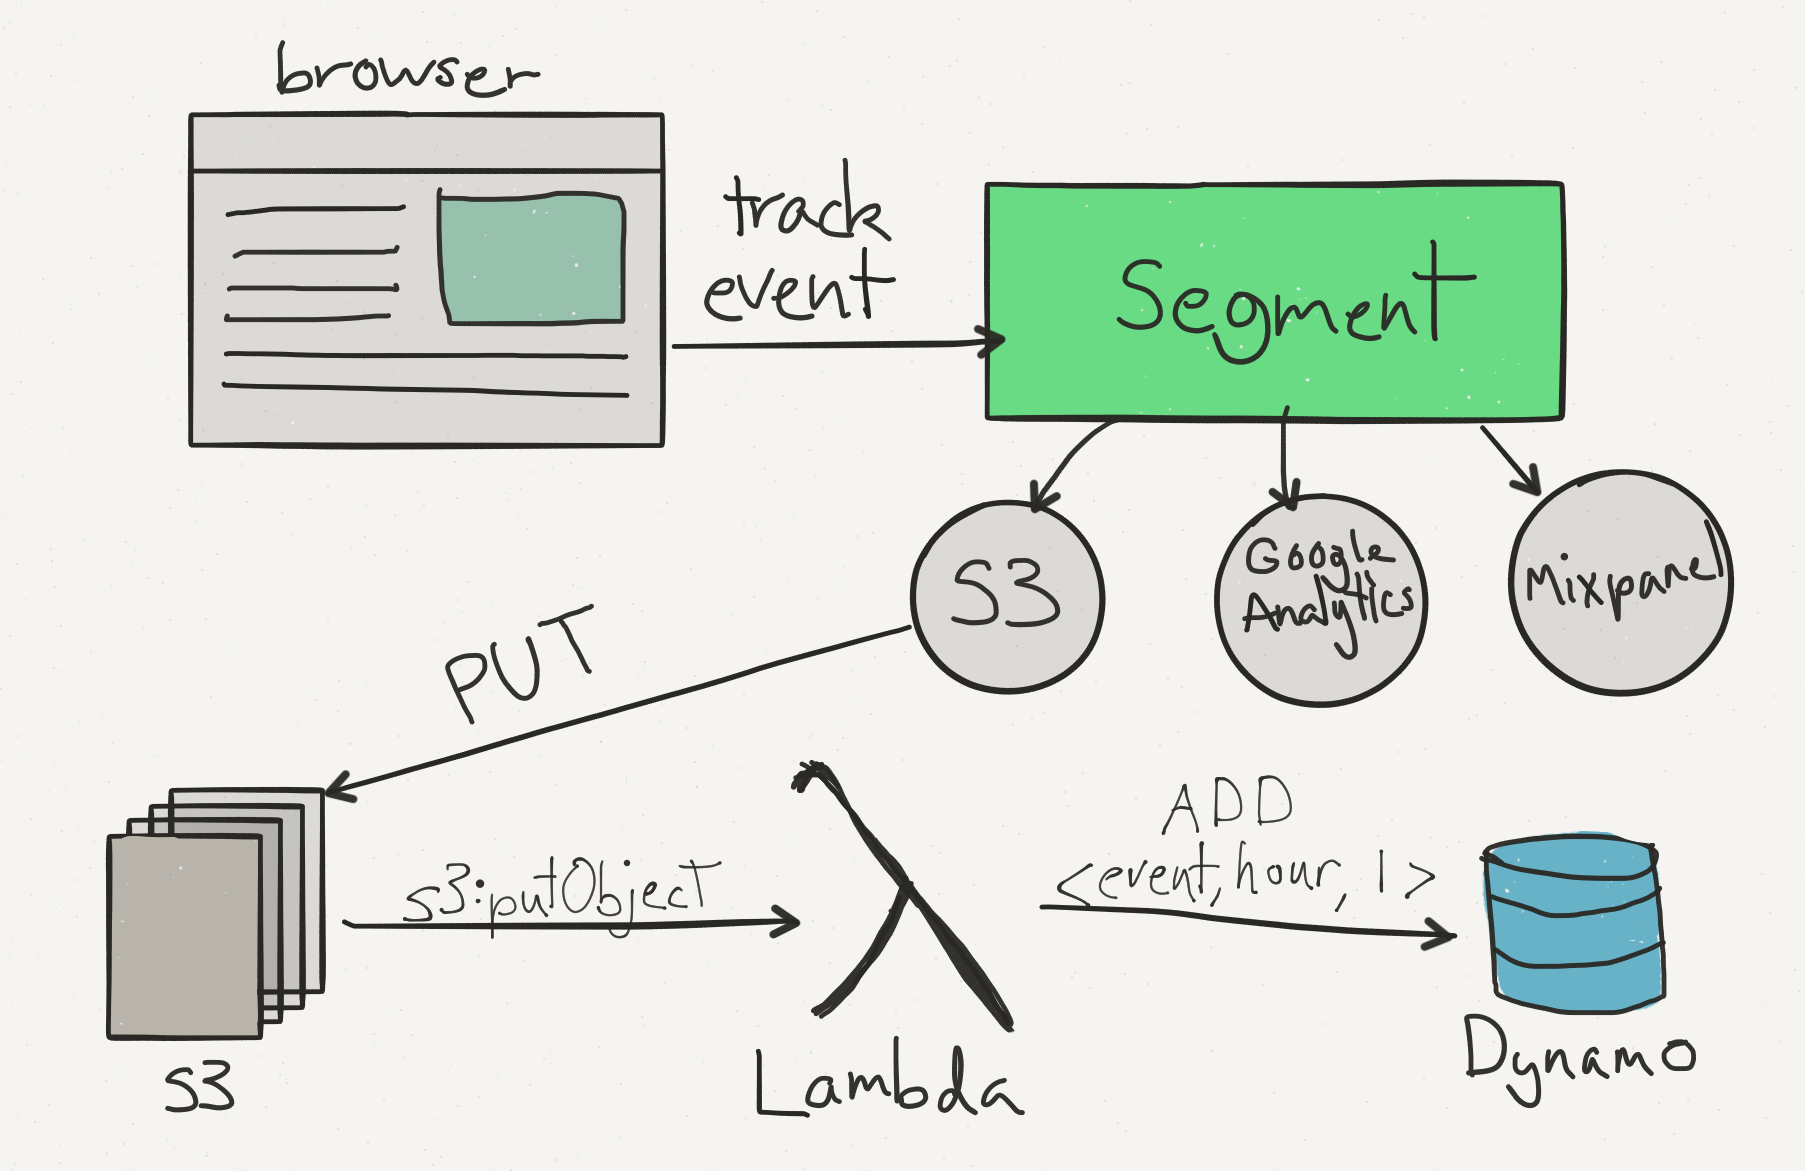 browser
track
event
Segment
S3
Google
Analytics
Mixpanel
PUT
s3:putObject
ADD
<event, hour, 1>
S3
Lambda
Dynamo